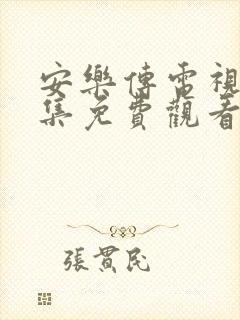 安樂傳電視
集免費觀看
張貫民